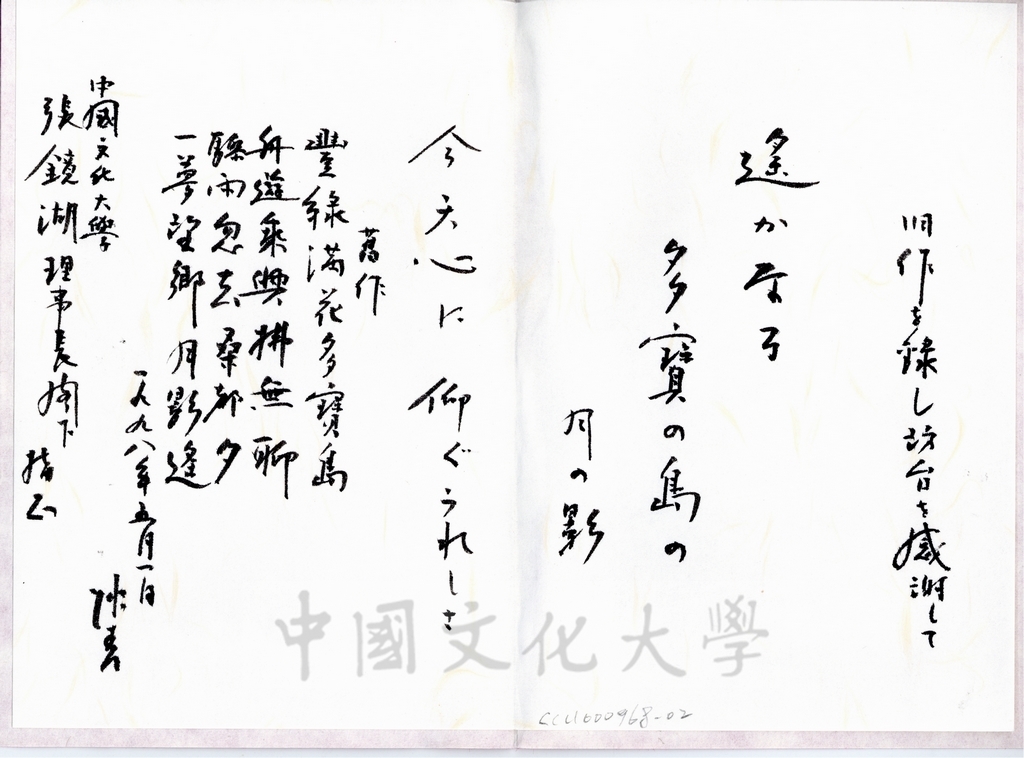 旧作を録し訪台を感謝して
遥かなる
多寳の島の
月の影
今天心に仰ぐうれしさ
舊作
豐綠满花多寳島
舟遊乘興掃無聊
聽雨忽去桑都夕
一夢望鄉月影逢
一九九八年五月一日
中國文化大學
張鏡湖理事長閣下 指正
中國文化大學
CCU000968-02